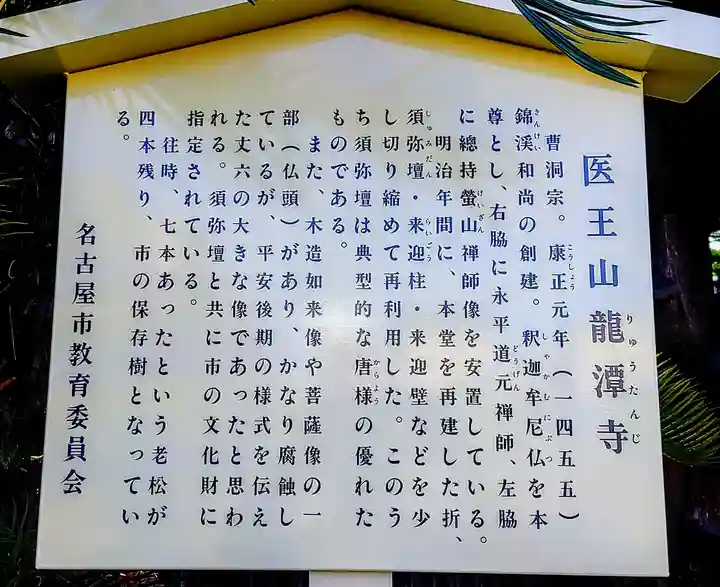 医王山龍潭寺
りゅうたんじ
曹洞宗。康正元年(一四五五)
こうしょう
錦溪和尚の創建。釈迦牟尼仏を本
きんけい
しゃかむにぶつ
尊とし、右脇に永平道元禅師、左脇
どうげん
に總持螢山禅師像を安置している。
けいざん
明治年間に、本堂を再建した折、
須弥壇・来迎柱・来迎壁などを少
しゅみだん
らいごう
し切り縮めて再利用した。このう
ち須弥壇は典型的な唐様の優れた
からよう
ものである。
また、木造如来像や菩薩像の一
部(仏頭)があり、かなり腐蝕し
ているが、平安後期の様式を伝え
た丈六の大きな像であったと思わ
れる。須弥壇と共に市の文化財に
指定されている。
往時、七本あったという老松が
四本残り、市の保存樹となってい
る。
名古屋市教育委員会